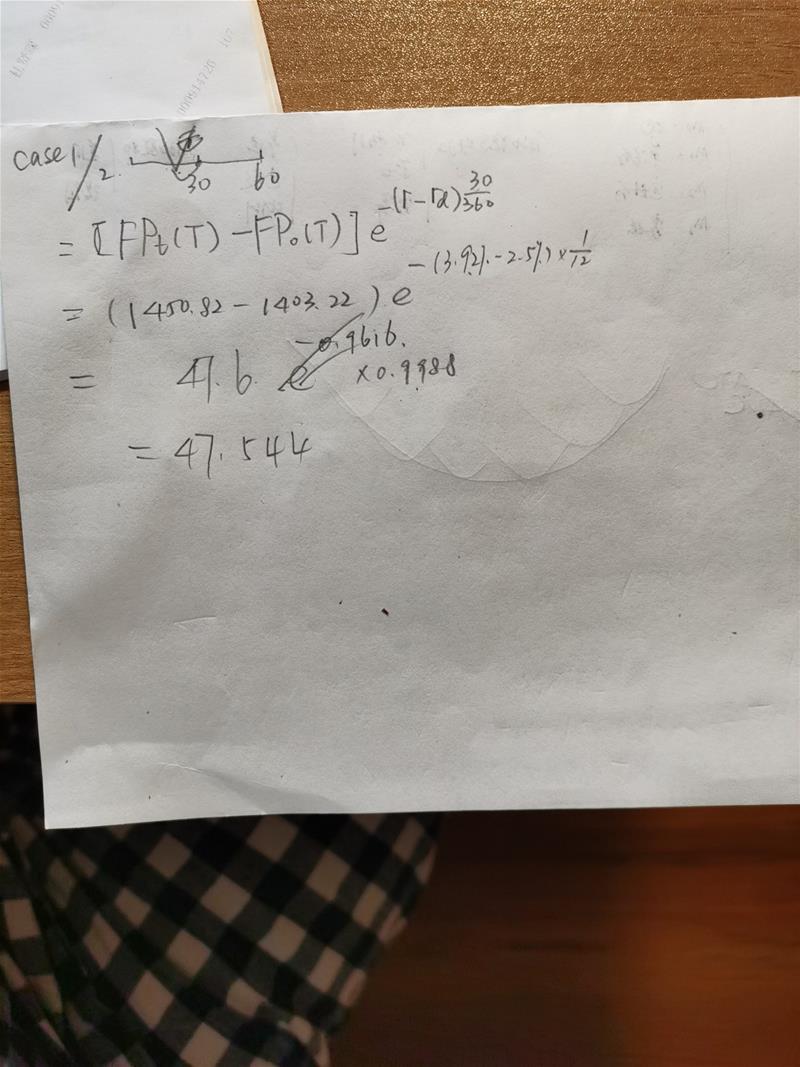 case 1/2.
30 60
= [FPt(T) - FP0(T)] e^-(r-rd)30/360
= (1450.82 - 1403.22) e^-(3.92%-2.5%)×1/12
= 47.6. e^-0.9616. ×0.9988
= 47.544